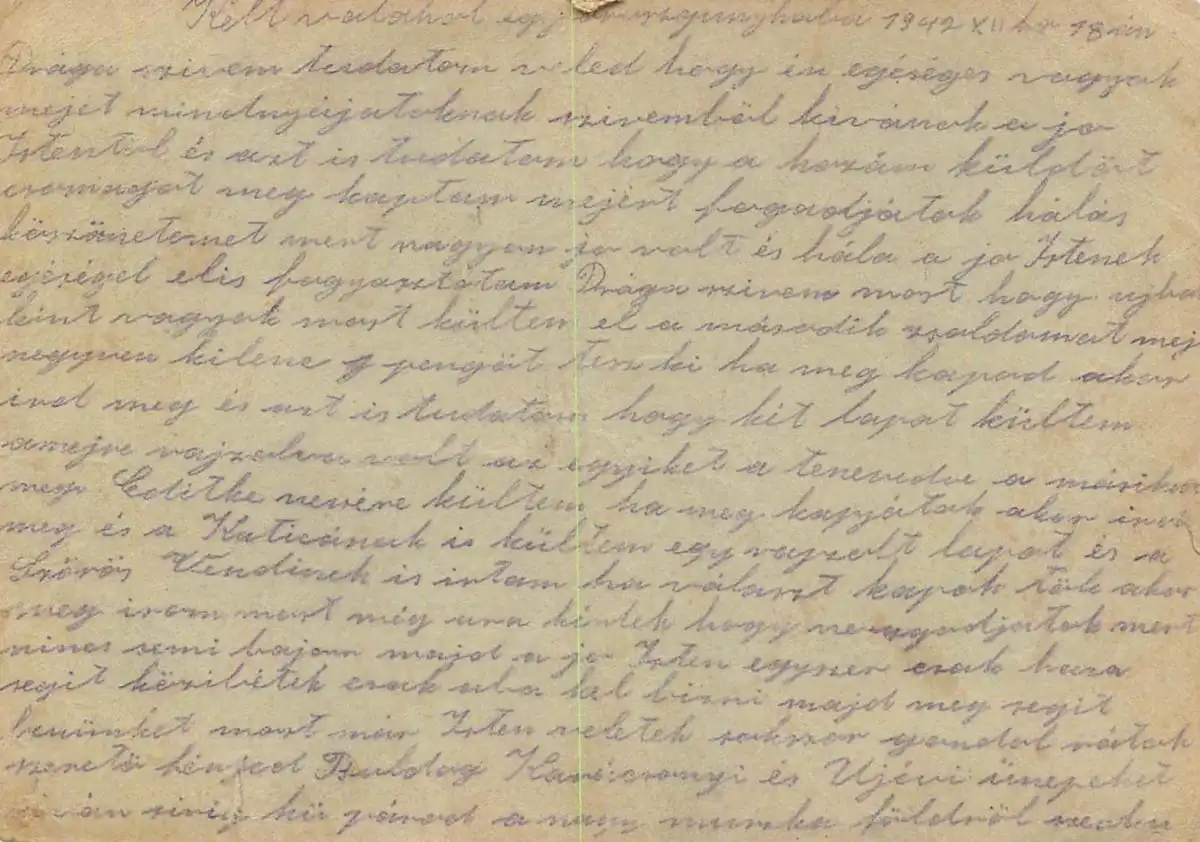 Kelt valahol egy orosz gunyhaba 1942 XII hr 18 án
Drága szivem tudatom veled hogy én egéséges vagyok
mejet mindnyájatoknak szivemből kivánok a jo
Istentől és azt is tudatom hogy a hozám küldöt
csomagot meg kaptam mejért fogadjátok hálás
köszönetemet mert nagyon jo volt és hála a jo Istenek
egéségel elis fogyasztotam Drága szivem most hogy ujba
kint vagyok most kültem el a második zsoldomat mej
negyven kilenc pengöt tesz ki ha meg kapod akor
ird meg és azt is tudatom hogy két lapot kültem
amejre rajzolva volt az egyiket a tenevedre a másikat
meg Editke nevére kültem ha meg kapjátok akor
meg és a Katicának is kültem egy rajzolt lapot és a
Szörös Vendinek is irtam ha választ kapok tök akor
meg irom most még ara kérlek hogy ne agodjatok mert
nincs semi bajom majd a jo Isten egyszer csak haza
segit közibétek csak aba kel bizni majd meg segit
benünket most már Isten veletek sokszor gondol rátok
szeretö férjed Boldog Karácsonyi és Ujévi ünepeket
kiván sirig hü párod a nagy muszka földröl